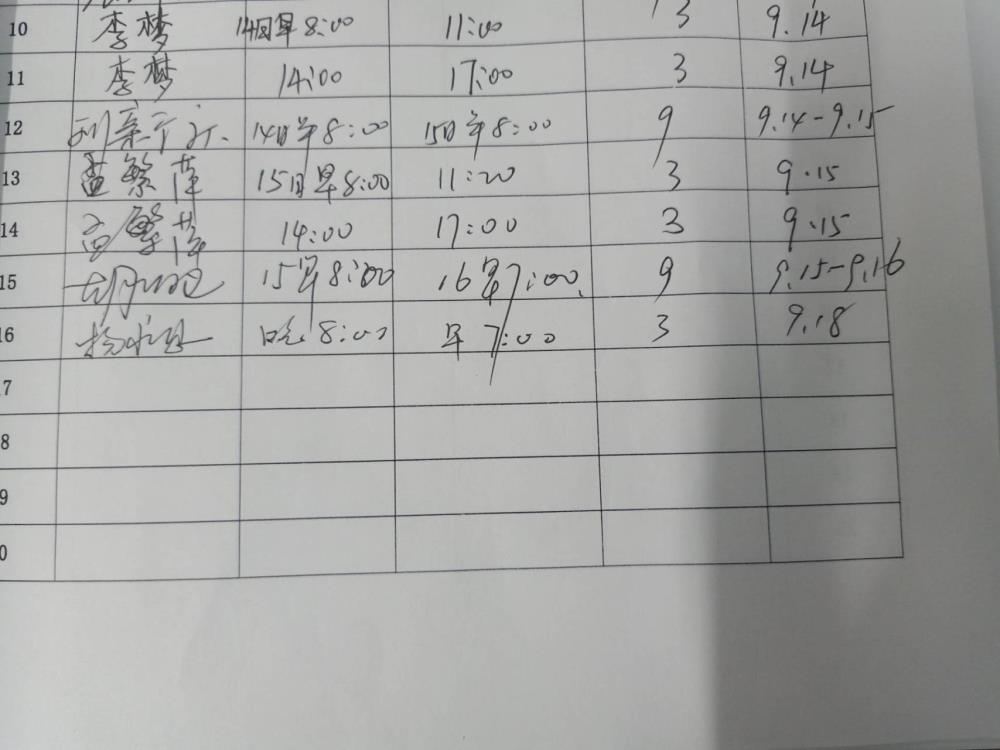 10 李梦 14日早8:00 11:00 3 9.14
11 李梦 14:00 17:00 3 9.14
12 14日早8:00 15日早8:00 9 9.14-9.15
13 孟繁萍 15日早8:00 11:20 3 9.15
14 孟繁萍 14:00 17:00 3 9.15
15 15早8:00 16早7:00 9 9.15-9.16
6 晚8:00 早7:00 3 9.18
7
8
9
0